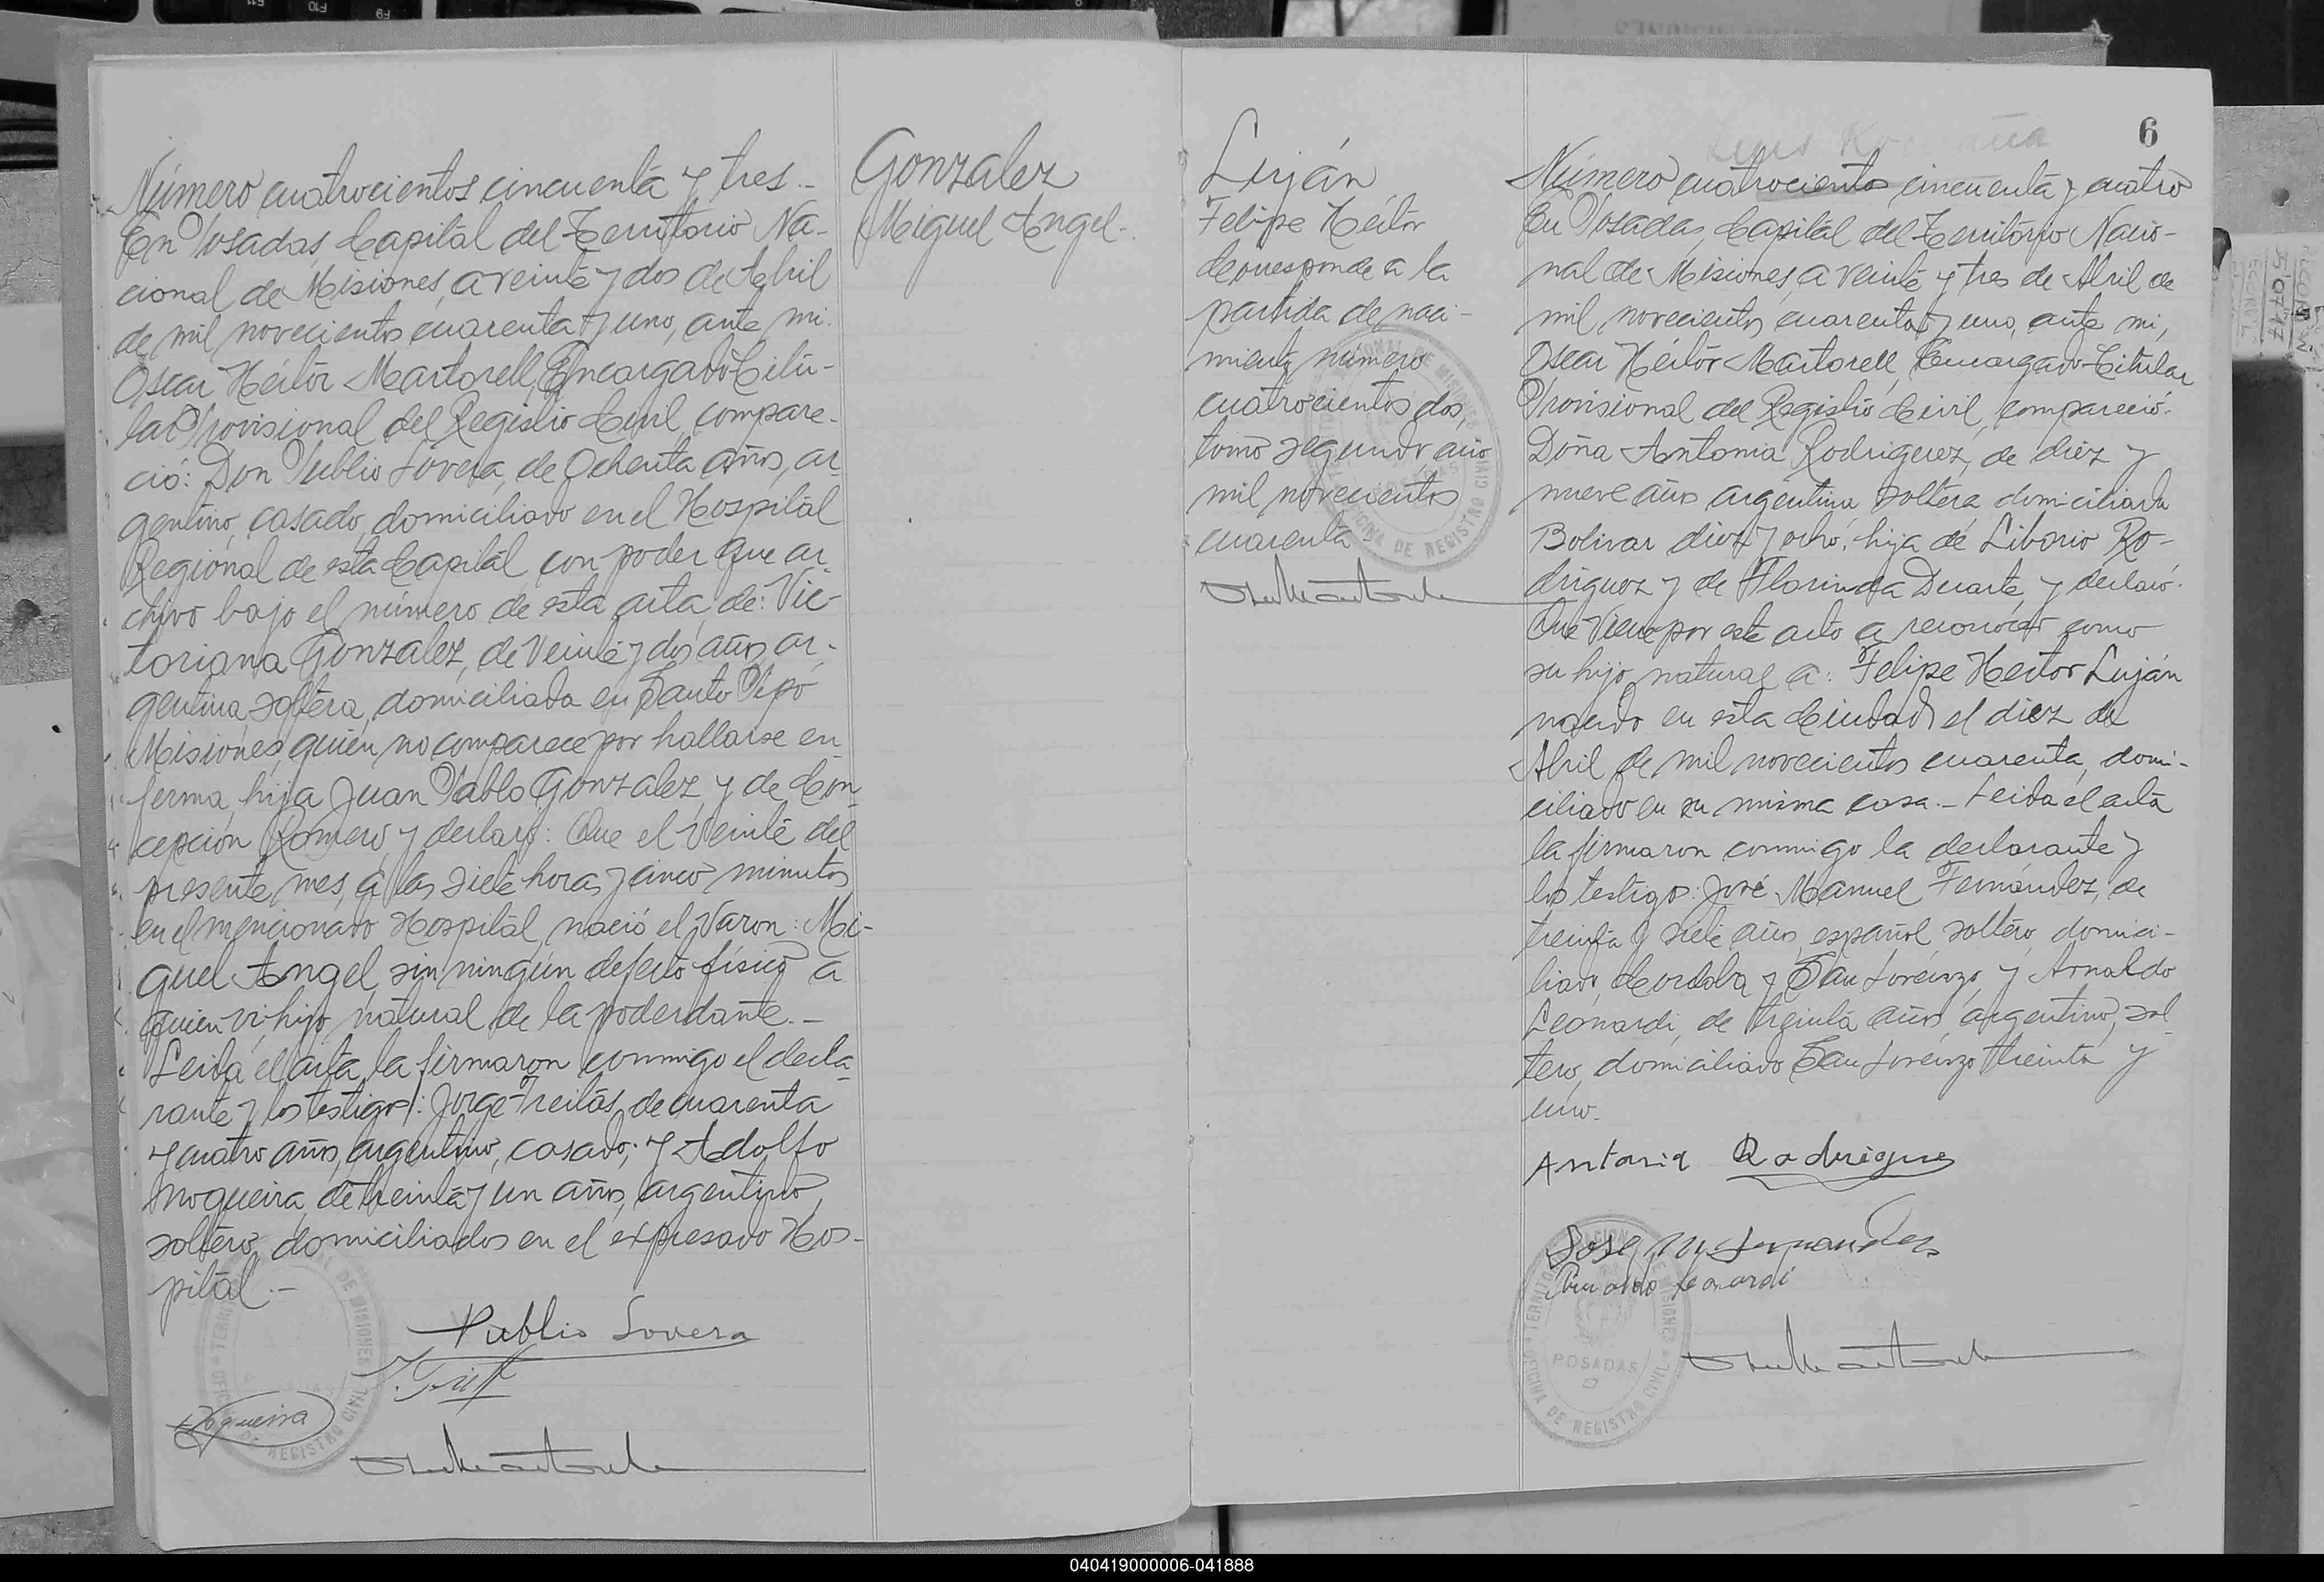 Número cuatrocientos cincuenta y tres.-
En Posadas, Capital del Territorio Na-
cional de Misiones, a veinte y dos de Abril
de mil novecientos cuarenta y uno, ante mi.
Oscar Héctor Martorell, Encargado Titu-
lar Provisional del Registro Civil, compare-
ció: Don Publio Lovera, de Ochenta años, ar-
gentino, casado, domiciliado en el Hospital
Regional de esta Capital, con poder que ar-
chivo bajo el número de esta acta, de: Vic-
toriana Gonzalez, de veinte y dos años, ar-
gentina, soltera, domiciliada en Santo Pipó
Misiones, quien, no comparece por hallarse en-
ferma, hija Juan Pablo Gonzalez y de Con-
cepción Romero y declaró: Que el veinte del
presente mes, a las siete horas y cinco minutos
en el mencionado Hospital, nació el varon: Mi-
guel Angel, sin ningún defecto físico a
quien vi, hijo natural de la poderdante.-
Leida el acta, la firmaron conmigo el decla-
rante y los testigos: Jorge Freitas, de cuarenta
y cuatro años, argentino, casado; y Adolfo
Nogueira, de treinta y un años, argentino,
soltero, domiciliados en el expresado Hos-
pital.-
Publio Lovera
Nogueira
Gonzalez
Miguel Angel.-
6
Luján
Felipe Héctor
corresponde a la
partida de naci-
miento número
cuatrocientos dos,
tomo segundo año
mil novecientos
cuarenta
Número cuatrocientos cincuenta y cuatro
En Posadas, Capital del Territorio Nacio-
nal de Misiones, a veinte y tres de Abril de
mil novecientos cuarenta y uno, ante mi,
Oscar Héctor Martorell, Encargado Titular
Provisional del Registro Civil, compareció:
Doña Antonia Rodriguez, de diez y
nueve años argentina, soltera domiciliada
Bolivar diez y ocho, hija de Liborio Ro-
driguez y de Florinda Duarte, y declaró:
Que viene por este acto a reconocer como
su hijo natural a: Felipe Hector Luján
nacido en esta Ciudad el diez de
Abril de mil novecientos cuarenta, domi-
ciliado en su misma casa.- Leida el acta
la firmaron conmigo la declarante y
los testigos: José Manuel Fernández, de
treinta y siete años, español soltero, domici-
liado, Cordoba y San Lorenzo, y Arnaldo
Leonardi, de treinta años, argentino, sol-
tero, domiciliado San Lorenzo treinta y
uno.
Antonia Rodrigues
Jose M. Fernandez
Arnaldo Leonardi
TERRITORIO NACIONAL DE MISIONES
POSADAS
OFICINA DE REGISTRO CIVIL
040419000006-041888